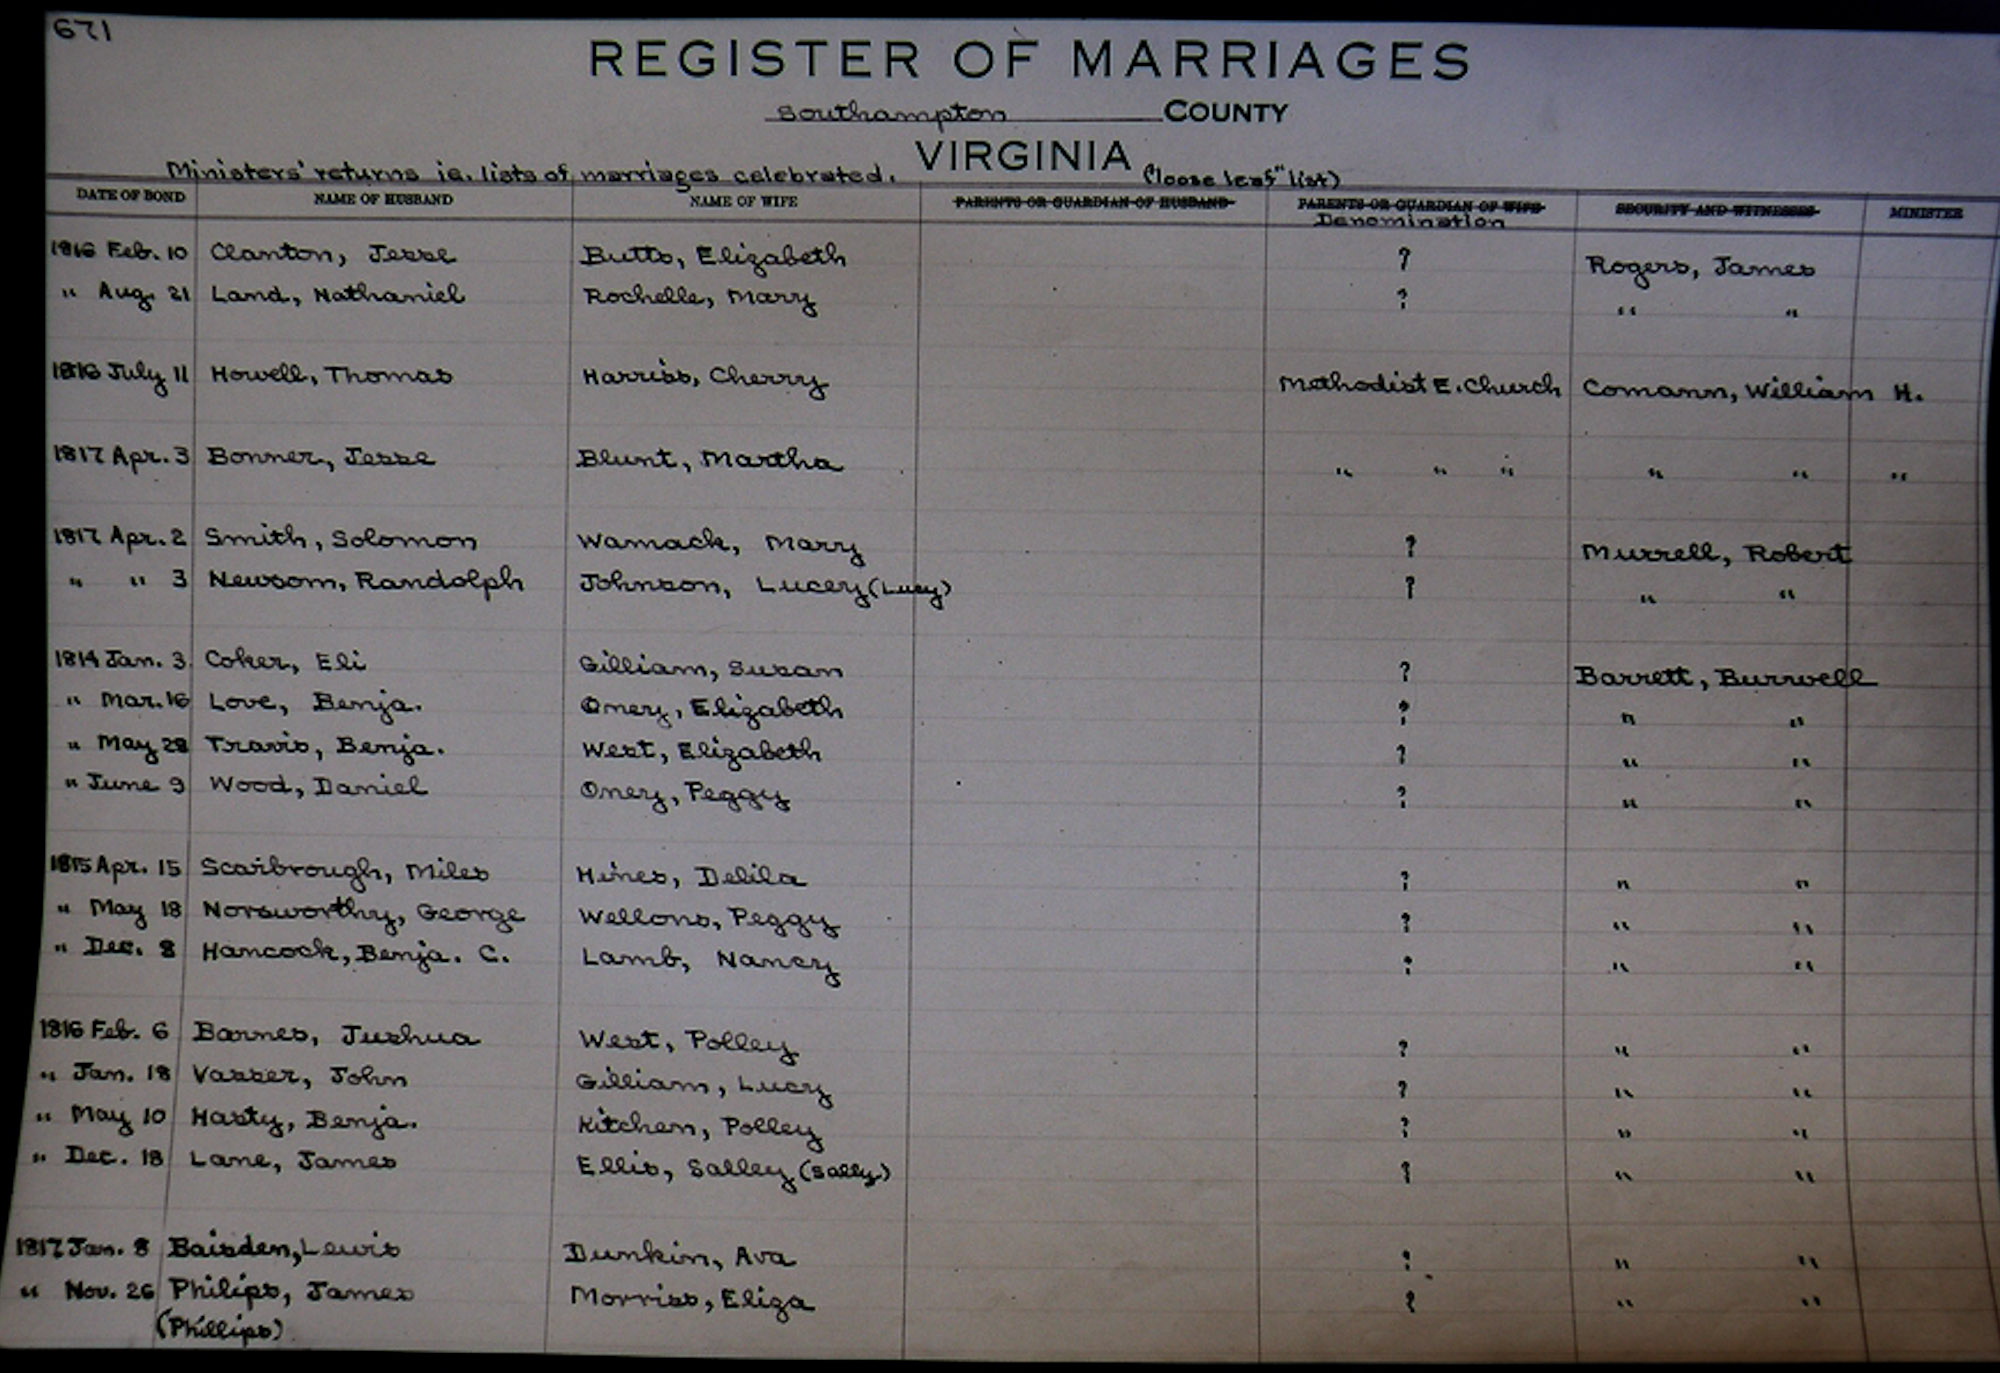 671
REGISTER OF MARRIAGES
Southampton COUNTY
VIRGINIA
Ministers' returns ie. lists of marriages celebrated. ("loose leaf" list)
DATE OF BOND NAME OF HUSBAND NAME OF WIFE PARENTS OR GUARDIAN OF HUSBAND PARENTS OR GUARDIAN OF WIFE SECURITY AND WITNESSES MINISTER
Denomination
1816 Feb. 10 Clanton, Jesse Butts, Elizabeth ? Rogers, James
" Aug. 21 Land, Nathaniel Rochelle, Mary ? " "
1816 July 11 Howell, Thomas Harriss, Cherry Methodist E. Church Comann, William H.
1817 Apr. 3 Bonner, Jesse Blunt, Martha " " " " " "
1817 Apr. 2 Smith, Solomon Wamack, Mary ? Murrell, Robert
" " 3 Newsom, Randolph Johnson, Lucey (Lucy) ? " "
1814 Jan. 3 Coker, Eli Gilliam, Susan ? Barrett, Burwell
" Mar. 16 Love, Benja. Omery, Elizabeth ? " "
" May 28 Travis, Benja. West, Elizabeth ? " "
" June 9 Wood, Daniel Omery, Peggy ? " "
1815 Apr. 15 Scarbrough, Miles Hines, Delila ? " "
" May 18 Norsworthy, George Wellons, Peggy ? " "
" Dec. 8 Hancock, Benja. C. Lamb, Nancy ? " "
1816 Feb. 6 Barnes, Jushua West, Polley ? " "
" Jan. 18 Vasser, John Gilliam, Lucy ? " "
" May 10 Hasty, Benja. Kitchen, Polley ? " "
" Dec. 18 Lane, James Ellis, Salley (Sally) ? " "
1817 Jan. 8 Baisden, Lewis Dunkin, Ava ? " "
" Nov. 26 Philips, James Morriss, Eliza ? " "
(Phillips)